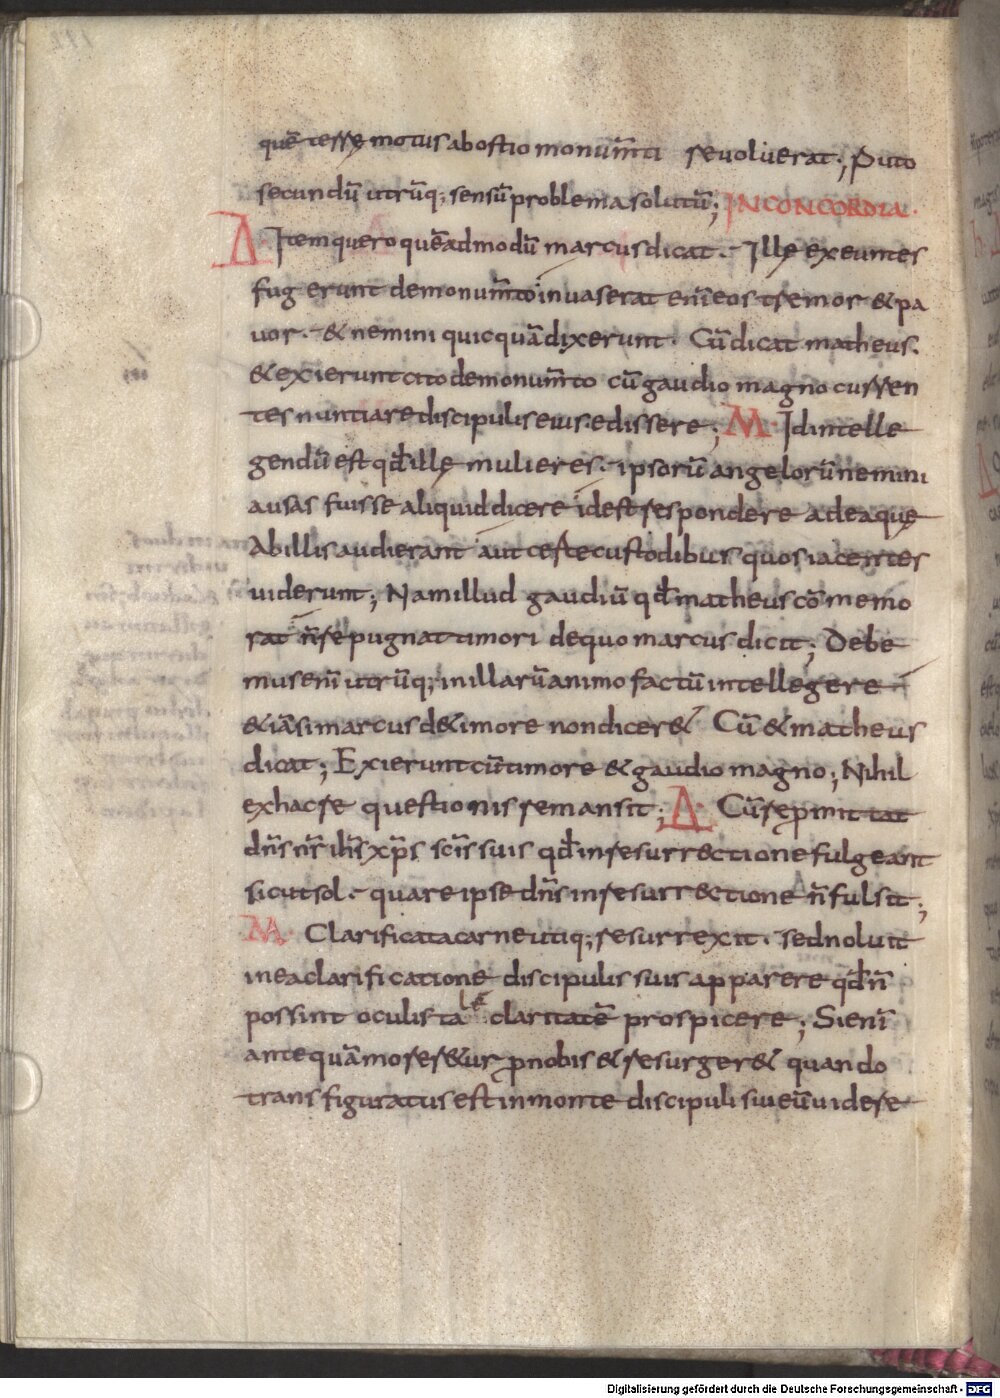 quē terrę motus ab ostio monum̄ti revolverat; Puto
secundū utrūq; sensū problema solutū; IN CONCORDIA.
Δ Item quero quēadmodū marcus dicat. Illę exeuntes
fugerunt de monum̄to invaserat enī eos tremor & pa
vor. & nemini quicquā dixerunt. Cū dicat matheus.
& exierunt cito de monum̄to cū gaudio magno curren
tes nuntiare discipulis eius edissere; M Id intelle
gendū est qđ illę mulieres. ipsorū angelorū nemini
ausas fuisse aliquid dicere id est respondere ad ea quę
Ab illis audierant aut certe custodibus quos iacentes
viderunt; Nam illud gaudiū qđ matheus cōmemo
rat n̄ repugnat timori de quo marcus dicit; Debe
mus enī utrūq; in illarū animo factū intellegere
& iā si marcus de timore non dicer& Cū & matheus
dicat; Exierunt cū timore & gaudio magno; Nihil
ex hac re questionis remansit; Δ Cū repmittat
dn̄s nr̄ ih̄s xp̄s sc̄is suis qđ in resurrectione fulgeant
sicut sol. quare ipse dn̄s in resurrectione n̄ fulsit;
M Clarificata carne utiq; resurrexit. sed noluit
in ea clarificatione discipulis suis apparere qđ n̄
possint oculis talē claritatē prospicere; Si enī
antequā morer&ur p nobis & resurger& quando
transfiguratus est in monte discipuli sui eū videre
Digitalisierung gefördert durch die Deutsche Forschungsgemeinschaft - DFG